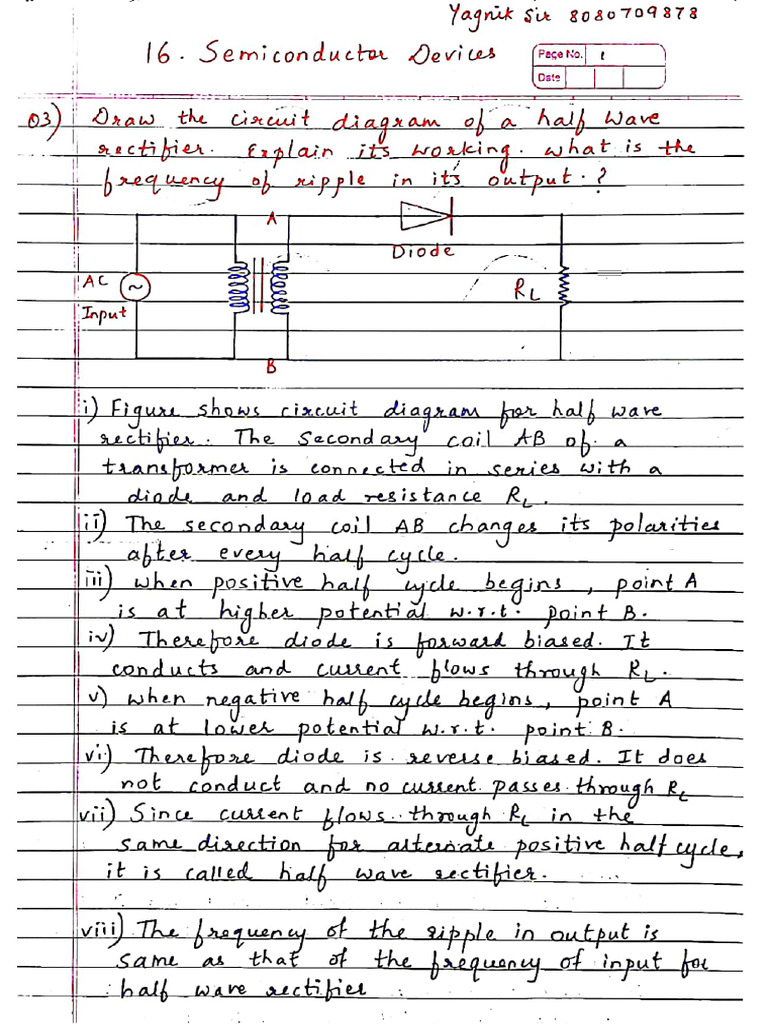 Yagnik Sir 8080709878
16. Semiconductor Devices
Page No. 1
Date
Q3) Draw the circuit diagram of a half wave
rectifier. Explain its working. what is the
frequency of ripple in its output.?
A
Diode
AC
Input
RL
B
i) Figure shows circuit diagram for half wave
rectifier. The secondary coil AB of a
transformer is connected in series with a
diode and load resistance RL.
ii) The secondary coil AB changes its polarities
after every half cycle.
iii) when positive half cycle begins, point A
is at higher potential w.r.t. point B.
iv) Therefore diode is forward biased. It
conducts and current flows through RL.
v) when negative half cycle begins, point A
is at lower potential w.r.t. point B.
vi) Therefore diode is reverse biased. It does
not conduct and no current passes through RL
vii) Since current flows through RL in the
same direction for alternate positive half cycle,
it is called half wave rectifier.
viii) The frequency of the ripple in output is
same as that of the frequency of input for
half wave rectifier